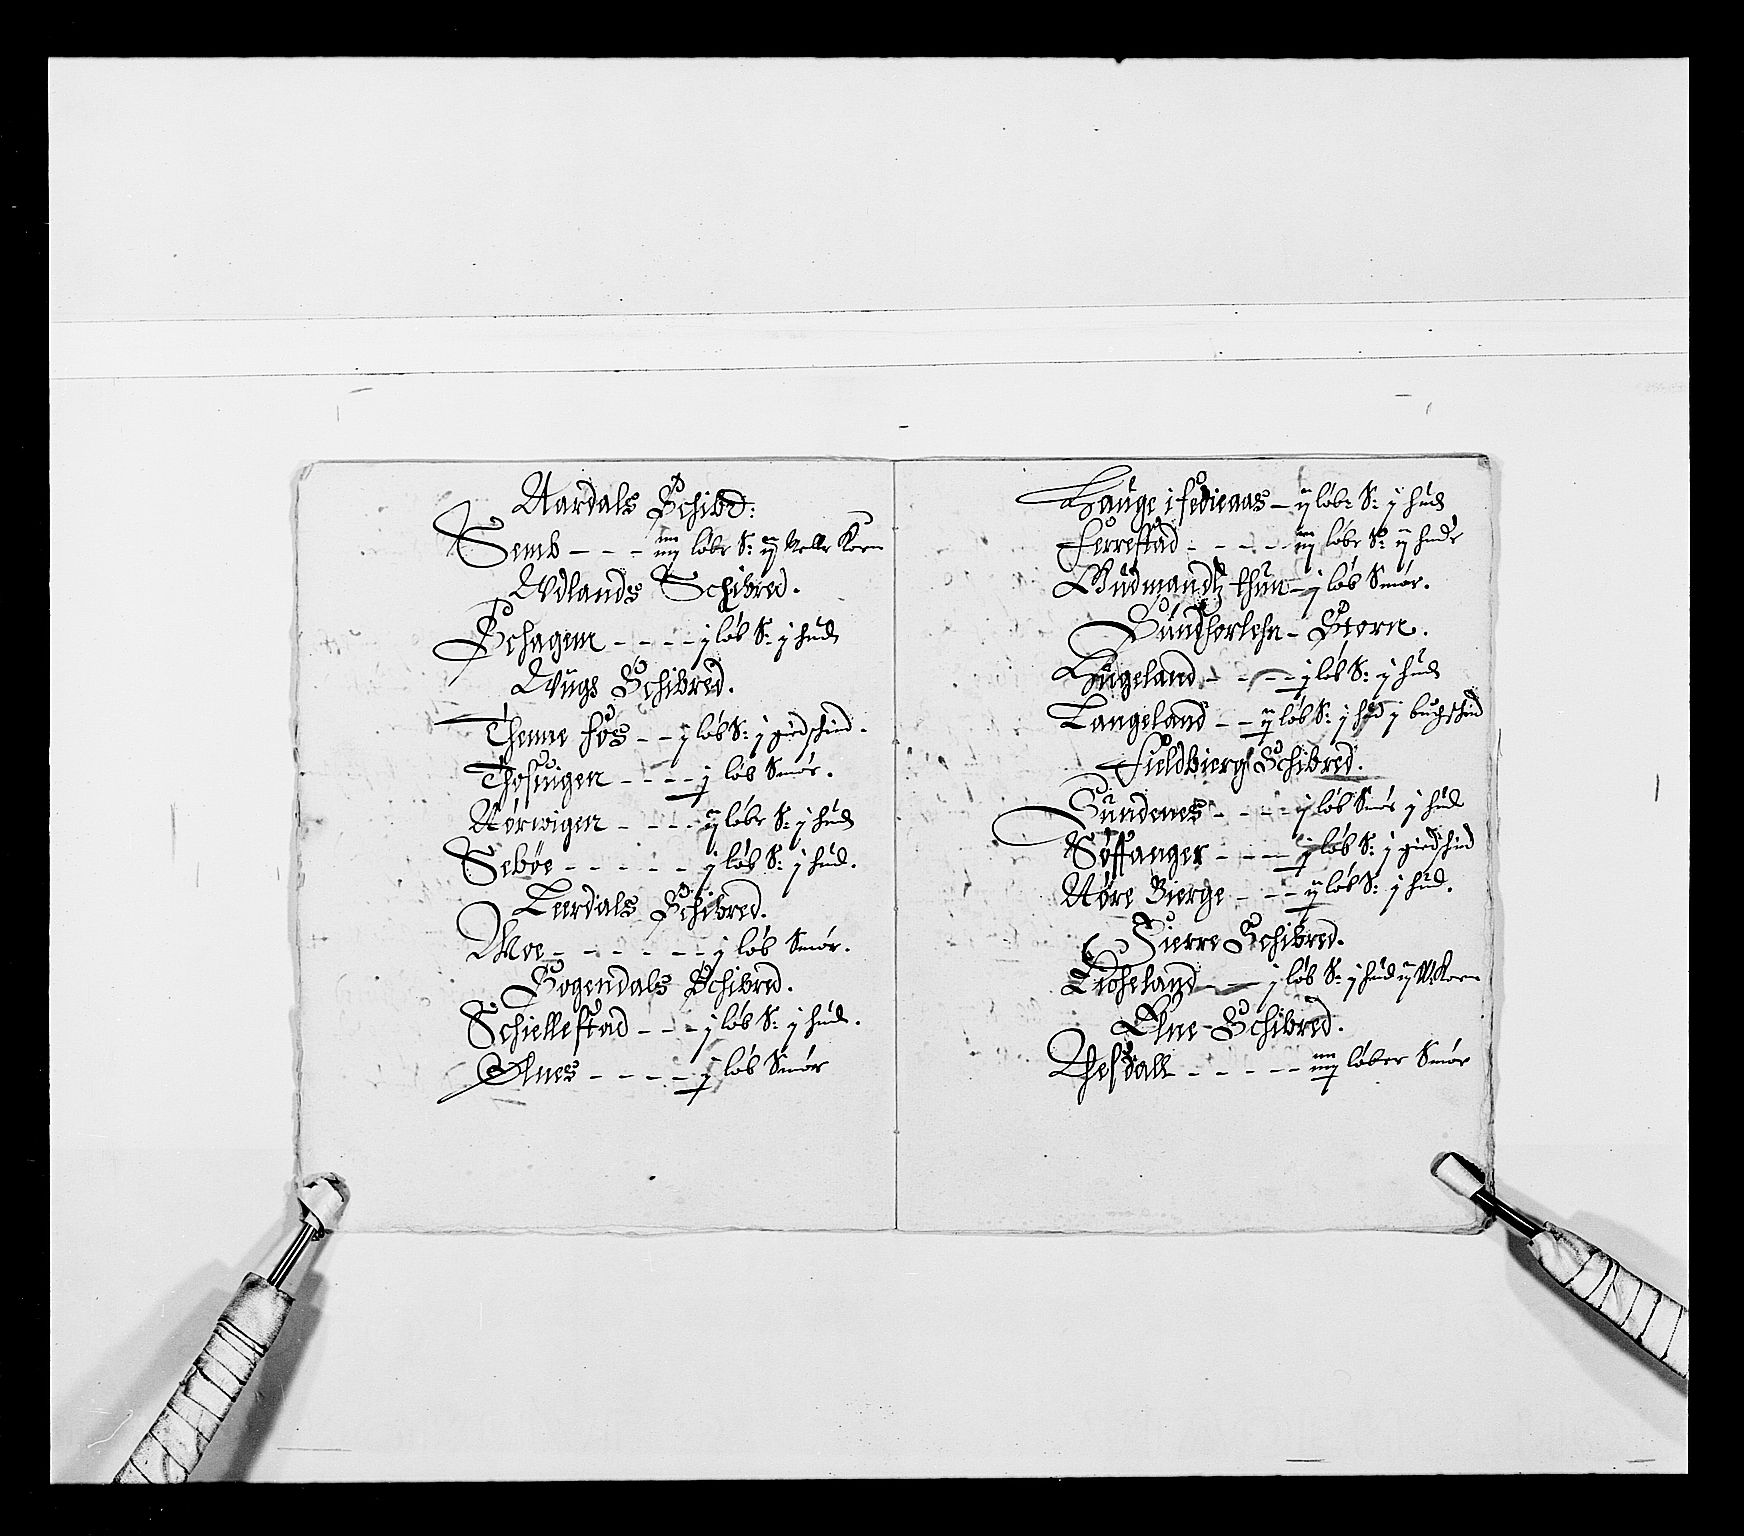 Aardals Schibd:
Semb - - - iiij løbe S: ij Melle Korn
Udlands Schibred.
Schagen - - - - j løb S: j hud
Wugs Schibred.
Thenne fos - - j løb S: j giedschind.
Thostuigen - - - - j løb Smør.
Nørwigen - - - - ij løbe S: j hud
Sebøe - - - - - j løb S: j hud.
Leerdals Schibred.
Moe - - - - - - j løb Smør.
Sogendals Schibred.
Schielleftad - - - j løb S: j hud.
Olnes - - - - j løb Smør
Hauge i fedieaas - ij løbe S: j hud
Ferrestad - - - - - iij løbe S: ij huder
Gudmandtz thun - j løb Smør.
Sundhorlehn - Storn.
Hugeland - - - - j løb S: j hud
Langeland - - ij løb S: j hud j buchschind
Fieldbierg Schibred.
Sundenes - - - - j løb Smør j hud
Søffanger - - - - j løb S: j giedschind
Nøre Bierge - - - ij løb S: j hud.
Fierre Schibred.
Liocheland - - j løb S: j hud ij M Korn
Olne - Schibred.
Hesdall - - - - - iiij løber Smør